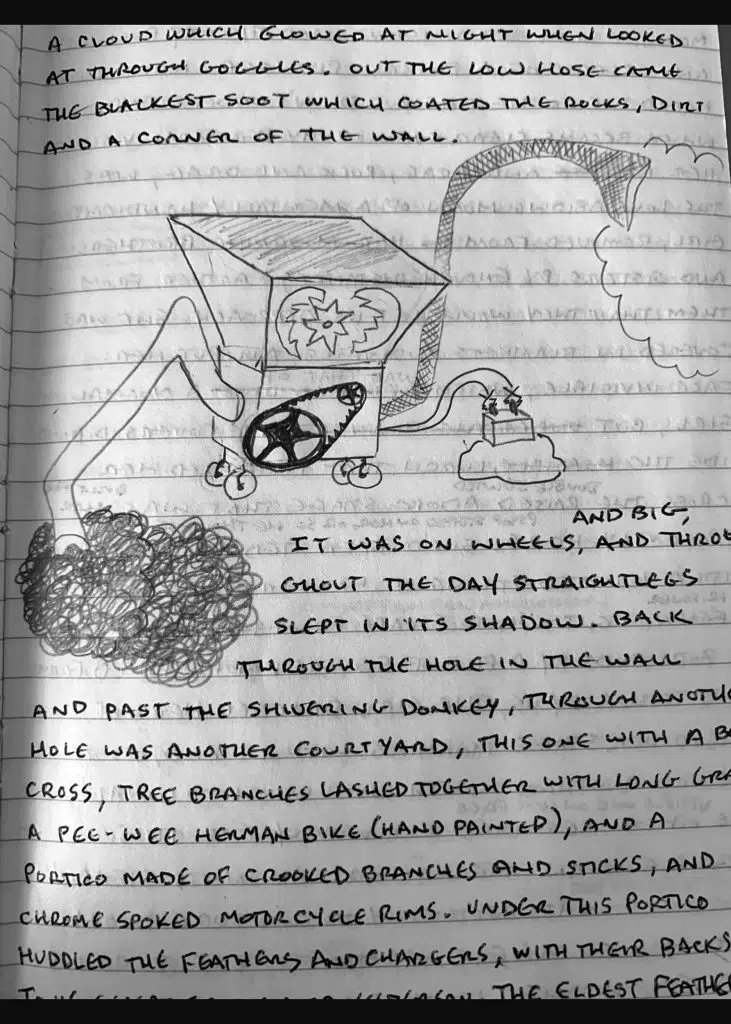 A CLOUD WHICH GLOWED AT NIGHT WHEN LOOKED
AT THROUGH GOGGLES. OUT THE LOW HOSE CAME
THE BLACKEST SOOT WHICH COATED THE ROCKS, DIRT
AND A CORNER OF THE WALL.
AND BIG,
IT WAS ON WHEELS, AND THROU
GHOUT THE DAY STRAIGHTLEGS
SLEPT IN ITS SHADOW. BACK
THROUGH THE HOLE IN THE WALL
AND PAST THE SHIVERING DONKEY, THROUGH ANOTH
HOLE WAS ANOTHER COURTYARD, THIS ONE WITH A
CROSS, TREE BRANCHES LASHED TOGETHER WITH LONG GRA
A PEE-WEE HERMAN BIKE (HAND PAINTED), AND A
PORTICO MADE OF CROOKED BRANCHES AND STICKS, AND
CHROME SPOKED MOTORCYCLE RIMS. UNDER THIS PORTICO
HUDDLED THE FEATHERS AND CHARGERS, WITH THEIR BACKS
THE ELDEST FEATHE